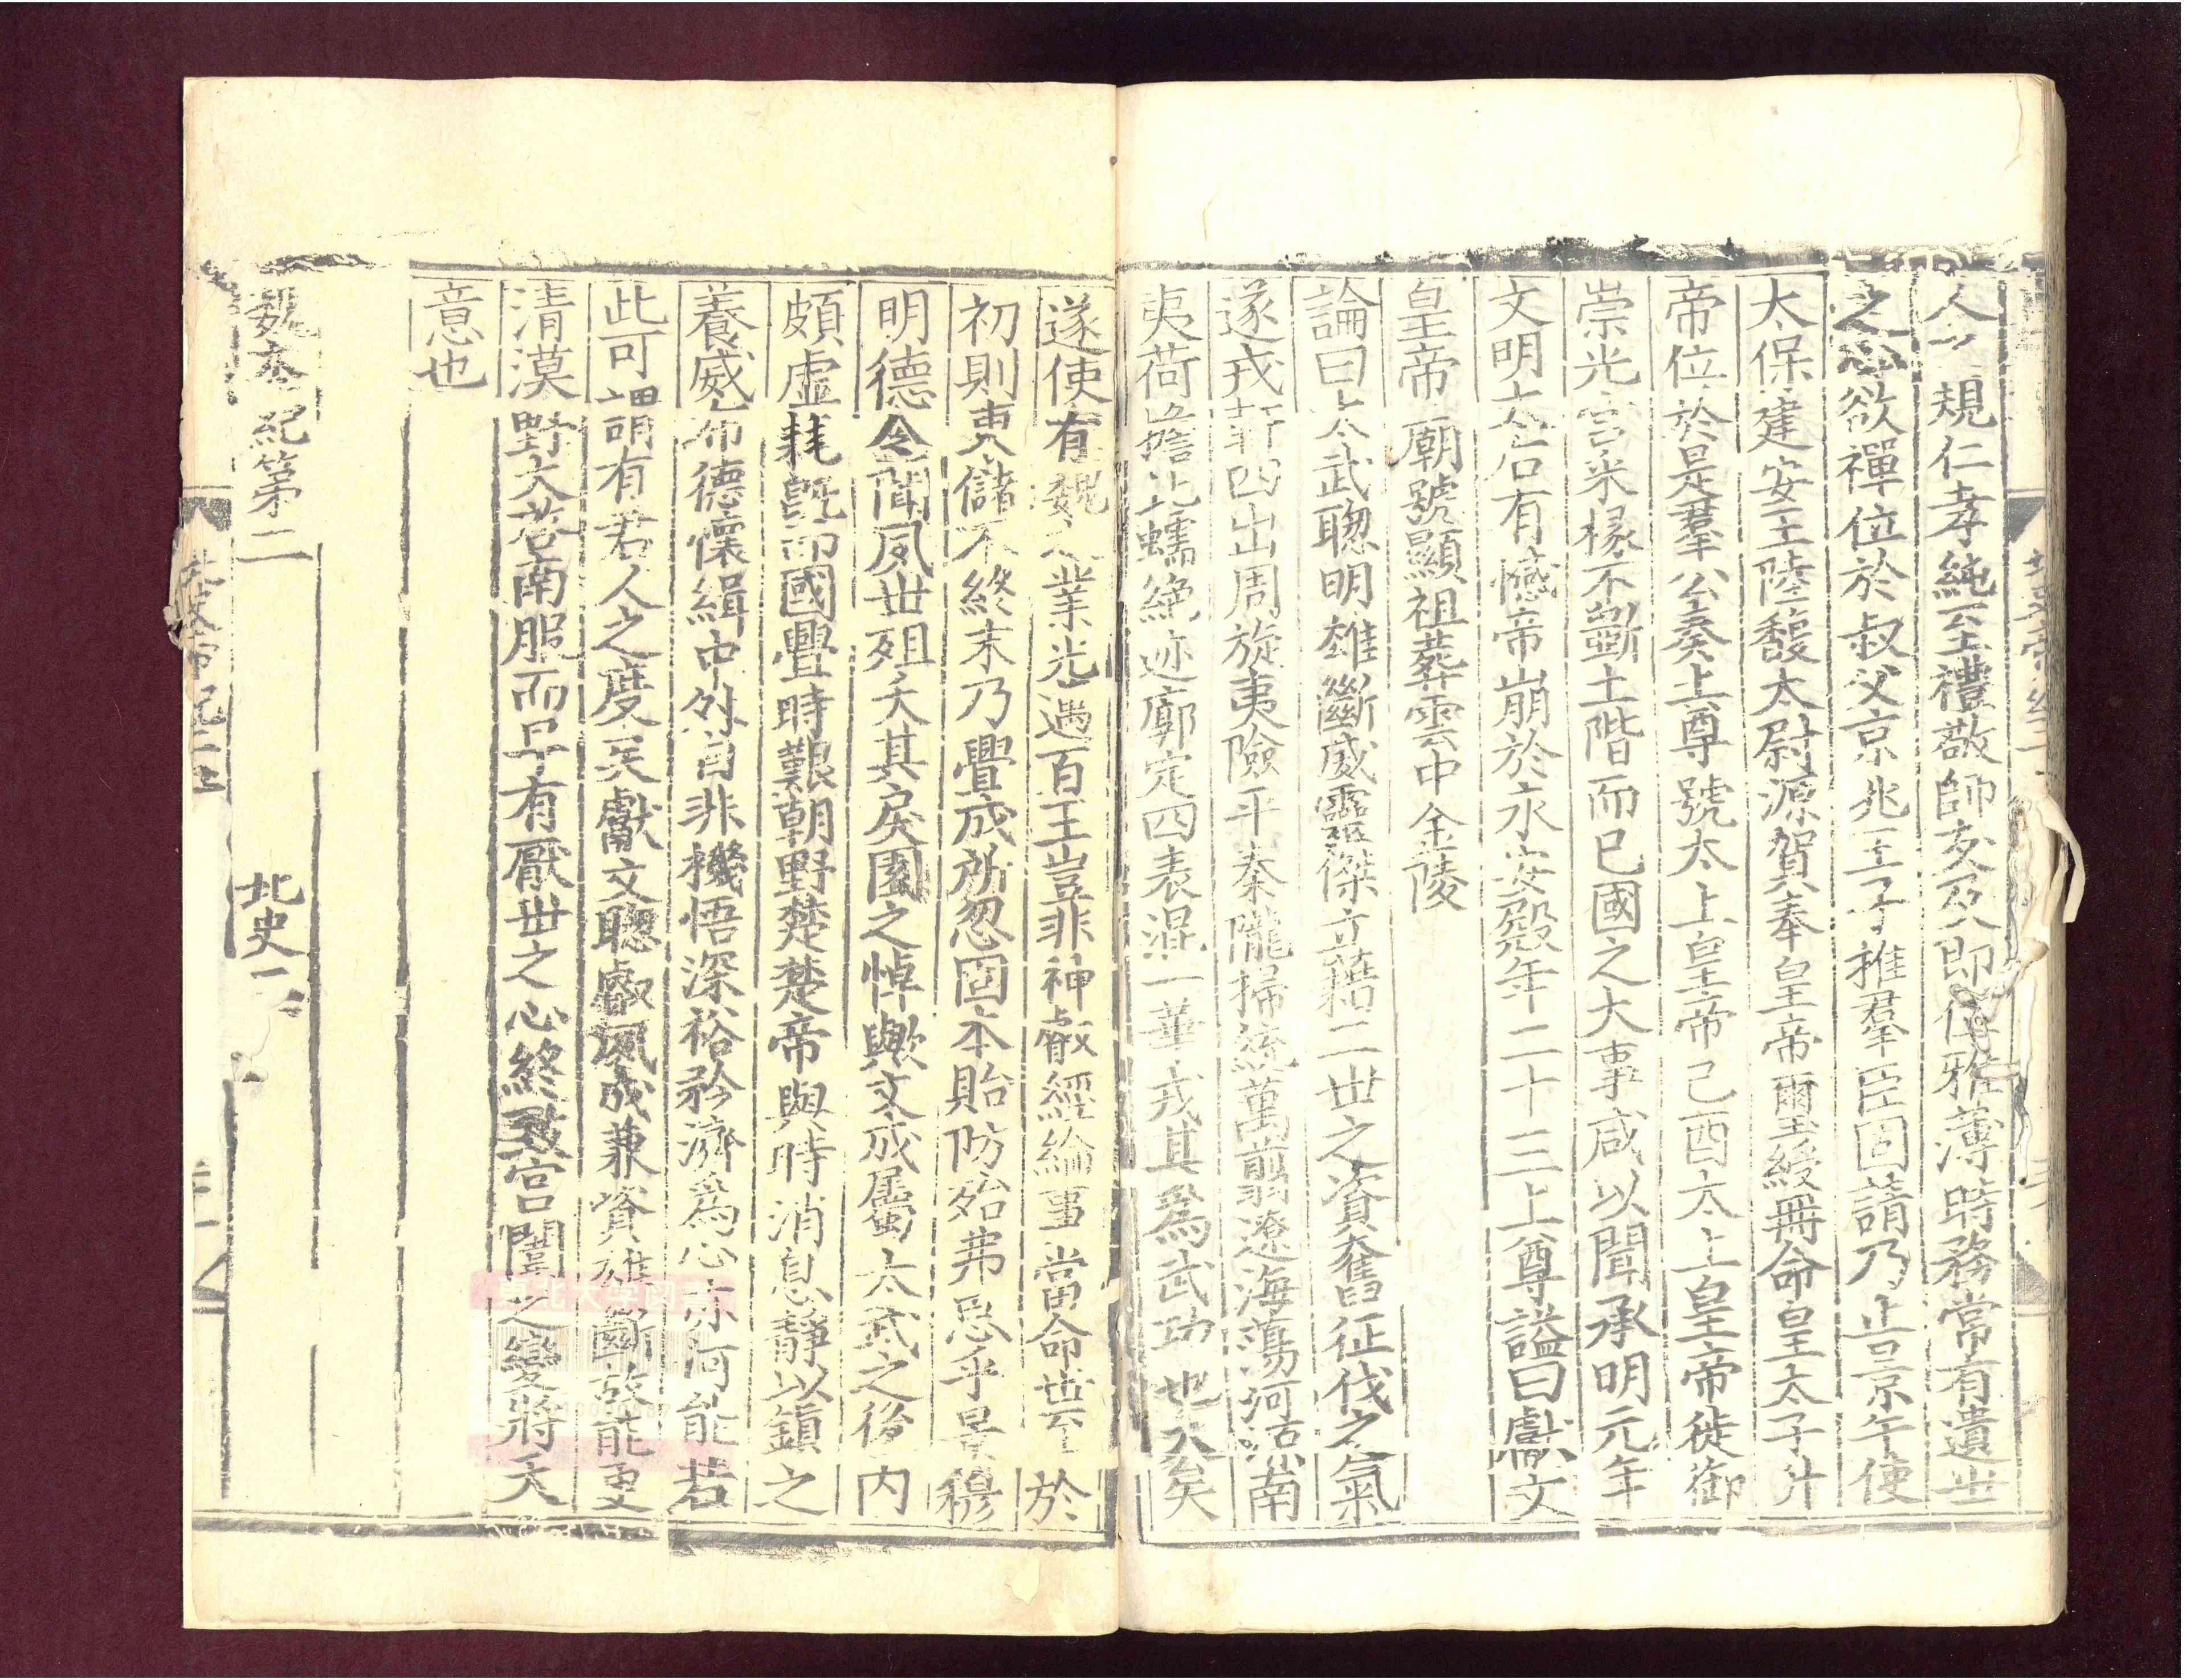 人之規仁孝純至禮敬師友及即位雅薄時務常有遺世
之心欲禪位於叔父京兆王子推羣臣固請乃止景午使
太保建安王陸馛太尉源賀奉皇帝璽綬冊命皇太子升
帝位於是羣公奏上尊號太上皇帝己酉太上皇帝徙御
崇光宮采椽不斵土階而已國之大事咸以聞承明元年
文明太后有憾帝崩於永安殿年二十三上尊謚曰獻文
皇帝廟號顯祖葬雲中金陵
論曰太武聰明雄斷威靈傑立藉二世之資奮征伐之氣
遂戎軒四出周旋夷險平秦隴掃統萬翦遼海蕩河源南
夷荷擔北蠕絶迹廓定四表混一華戎其爲武功也大矣
遂使有魏之業光邁百王豈非神叡經綸事當命世至於
初則東儲不終末乃舋成所忽固本貽防殆弗思乎景穆
明德令聞夙世殂夭其戾園之悼歟文成屬太武之後内
頗虛耗旣而國舋時艱朝野楚楚帝與時消息靜以鎮之
養威布德懷緝中外自非機悟深裕矜濟爲心亦何能若
此可謂有君人之度矣獻文聰叡夙成兼資雄斷故能更
清漠野大啓南服而早有厭世之心終致宮闈之變將天
意也
魏本紀第二 北史二